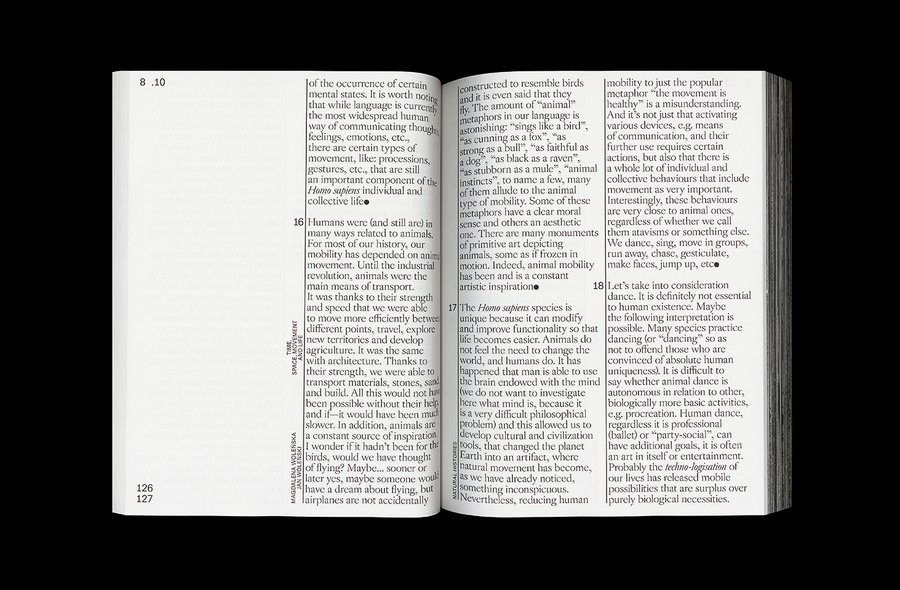 8 .10
of the occurrence of certain
mental states. It is worth noting
that while language is currently
the most widespread human
way of communicating thoughts,
feelings, emotions, etc.,
there are certain types of
movement, like: processions,
gestures, etc., that are still
an important component of the
Homo sapiens individual and
collective life●
16 Humans were (and still are) in
many ways related to animals.
For most of our history, our
mobility has depended on animal
movement. Until the industrial
revolution, animals were the
main means of transport.
It was thanks to their strength
and speed that we were able
to move more efficiently between
different points, travel, explore
new territories and develop
agriculture. It was the same
with architecture. Thanks to
their strength, we were able to
transport materials, stones, sand,
and build. All this would not have
been possible without their help,
and if—it would have been much
slower. In addition, animals are
a constant source of inspiration.
I wonder if it hadn't been for the
birds, would we have thought
of flying? Maybe... sooner or
later yes, maybe someone would
have a dream about flying, but
airplanes are not accidentally
TIME
SPACE, MOVEMENT
AND LIFE
MAGDALENA WOLEŃSKA
JAN WOLEŃSKI
126
127
constructed to resemble birds
and it is even said that they
fly. The amount of “animal”
metaphors in our language is
astonishing: “sings like a bird”,
“as cunning as a fox”, “as
strong as a bull”, “as faithful as
a dog”, “as black as a raven”,
“as stubborn as a mule”, “animal
instincts”, to name a few, many
of them allude to the animal
type of mobility. Some of these
metaphors have a clear moral
sense and others an aesthetic
one. There are many monuments
of primitive art depicting
animals, some as if frozen in
motion. Indeed, animal mobility
has been and is a constant
artistic inspiration●
17 The Homo sapiens species is
unique because it can modify
and improve functionality so that
life becomes easier. Animals do
not feel the need to change the
world, and humans do. It has
happened that man is able to use
the brain endowed with the mind
(we do not want to investigate
here what mind is, because it
is a very difficult philosophical
problem) and this allowed us to
develop cultural and civilization
tools, that changed the planet
Earth into an artifact, where
natural movement has become,
as we have already noticed,
something inconspicuous.
Nevertheless, reducing human
NATURAL HISTORIES
mobility to just the popular
metaphor “the movement is
healthy” is a misunderstanding.
And it's not just that activating
various devices, e.g. means
of communication, and their
further use requires certain
actions, but also that there is
a whole lot of individual and
collective behaviours that include
movement as very important.
Interestingly, these behaviours
are very close to animal ones,
regardless of whether we call
them atavisms or something else.
We dance, sing, move in groups,
run away, chase, gesticulate,
make faces, jump up, etc●
18 Let's take into consideration
dance. It is definitely not essential
to human existence. Maybe
the following interpretation is
possible. Many species practice
dancing (or “dancing” so as
not to offend those who are
convinced of absolute human
uniqueness). It is difficult to
say whether animal dance is
autonomous in relation to other,
biologically more basic activities,
e.g. procreation. Human dance,
regardless it is professional
(ballet) or “party-social”, can
have additional goals, it is often
an art in itself or entertainment.
Probably the techno-logisation of
our lives has released mobile
possibilities that are surplus over
purely biological necessities.